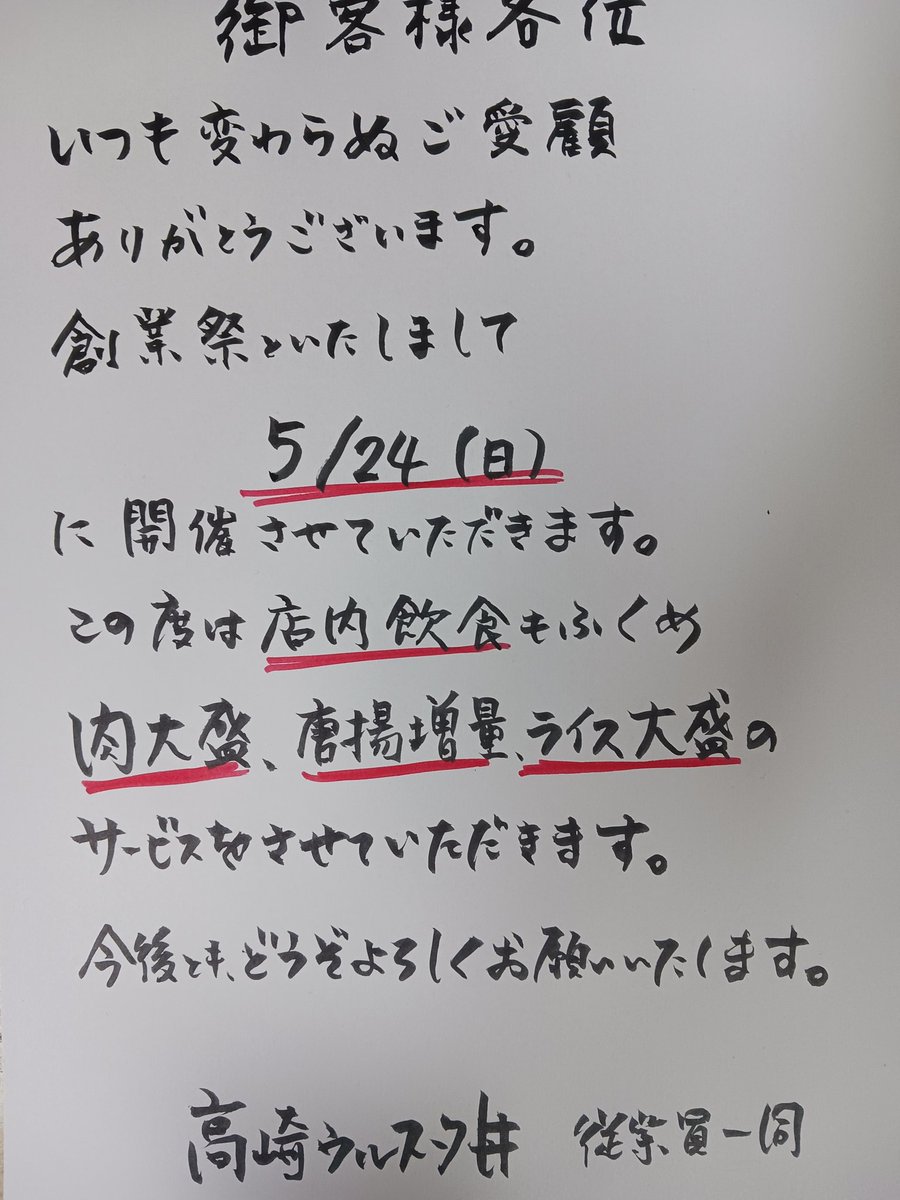 御客様各位
いつも変わらぬご愛顧
ありがとうございます。
創業祭といたしまして
5/24(日)
に開催させていただきます。
この度は店内飲食もふくめ
肉大盛、唐揚増量、ライス大盛の
サービスをさせていただきます。
今後とも、どうぞよろしくお願いいたします。
高崎ウルスタ丼 従業員一同